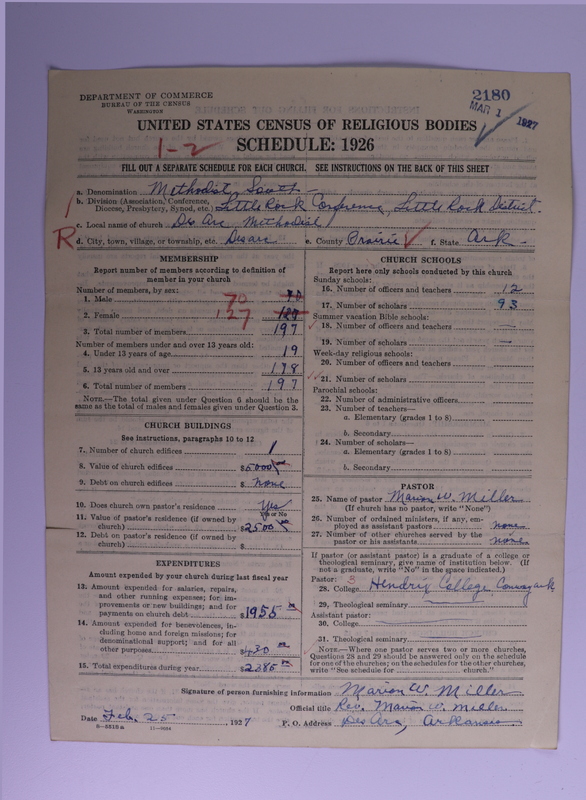 DEPARTMENT OF COMMERCE
BUREAU OF THE CENSUS
WASHINGTON
2180
MAR 1 1927
UNITED STATES CENSUS OF RELIGIOUS BODIES
1-2
SCHEDULE: 1926
FILL OUT A SEPARATE SCHEDULE FOR EACH CHURCH. SEE INSTRUCTIONS ON THE BACK OF THIS SHEET
a. Denomination Methodist, South
b. Division (Association, Conference, Diocese, Presbytery, Synod, etc.) Little Rock Conference, Little Rock District.
c. Local name of church Des Arc Methodist
R
d. City, town, village, or township, etc. Des arc e. County Prairie f. State Ark
MEMBERSHIP
Report number of members according to definition of
member in your church
Number of members, by sex:
1. Male 70 70
2. Female 127 127
3. Total number of members 197
Number of members under and over 13 years old:
4. Under 13 years of age 19
5. 13 years old and over 178
6. Total number of members 197
NOTE.—The total given under Question 6 should be the
same as the total of males and females given under Question 3.
CHURCH BUILDINGS
See instructions, paragraphs 10 to 12
7. Number of church edifices 1
8. Value of church edifices $5000
9. Debt on church edifices $ none
10. Does church own pastor's residence Yes
Yes or No
11. Value of pastor's residence (if owned by
church) $2500
12. Debt on pastor's residence (if owned by
church) $
EXPENDITURES
Amount expended by your church during last fiscal year
13. Amount expended for salaries, repairs,
and other running expenses; for im-
provements or new buildings; and for
payments on church debt $1955
14. Amount expended for benevolences, in-
cluding home and foreign missions; for
denominational support; and for all
other purposes $430
15. Total expenditures during year $2385
CHURCH SCHOOLS
Report here only schools conducted by this church
Sunday schools:
16. Number of officers and teachers 12
17. Number of scholars 93
Summer vacation Bible schools:
18. Number of officers and teachers —
19. Number of scholars —
Week-day religious schools:
20. Number of officers and teachers
21. Number of scholars
Parochial schools:
22. Number of administrative officers
23. Number of teachers—
a. Elementary (grades 1 to 8)
b. Secondary
24. Number of scholars—
a. Elementary (grades 1 to 8)
b. Secondary
PASTOR
25. Name of pastor Marion W. Miller
(If church has no pastor, write "None")
26. Number of ordained ministers, if any, em-
ployed as assistant pastors none
27. Number of other churches served by the
pastor or his assistants none
If pastor (or assistant pastor) is a graduate of a college or
theological seminary, give name of institution below. (If
not a graduate, write "No" in the space indicated.)
Pastor: 3
28. College Hendrix College, Conway ark
29. Theological seminary
Assistant pastor:
30. College
31. Theological seminary
NOTE.—Where one pastor serves two or more churches,
Questions 28 and 29 should be answered only on the schedule
for one of the churches; on the schedules for the other churches,
write "See schedule for church."
Signature of person furnishing information Marion W. Miller
Official title Rev. Marion W. Miller
Date Feb. 25, 1927 P. O. Address Des Arc, Arkansas